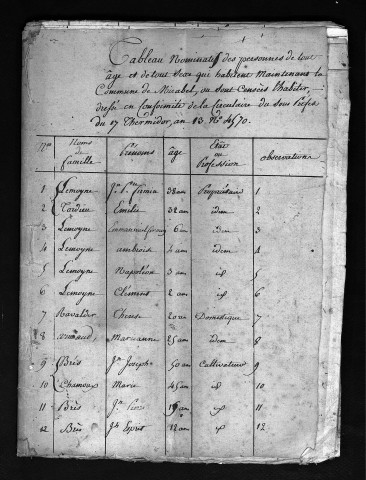 Tableau Nominatif des personnes de tout
âge et de tout Sexe qui habitent Maintenant la
Commune de Mirabel, ou Sont Censées l'habiter,
dressé en Conformité de la Circulaire du Sous Préfet
du 17 Thermidor, an 13. N.º 4570.
N.os Noms de famille Prénoms âge Etat ou Profession observations
1 Lemoyne J.n P.re Firmin 38 ans Propriétaire 1
2 Tardieu Emilie 32 ans idem 2
3 Lemoyne 6 ans idem 3
4 Lemoyne ambrois 4 ans idem 4
5 Lemoyne Napoléon 3 ans id 5
6 Lemoyne Clément 2 ans id 6
7 Ravalder Therese 20 ans Domestique 7
8 Marianne 25 ans idem 8
9 Brès J.n Joseph 50 ans Cultivateur 9
10 Chamoux Marie 45 ans id 10
11 Brès J.n 19 ans id 11
12 Brès J.h Esprit 12 ans id 12